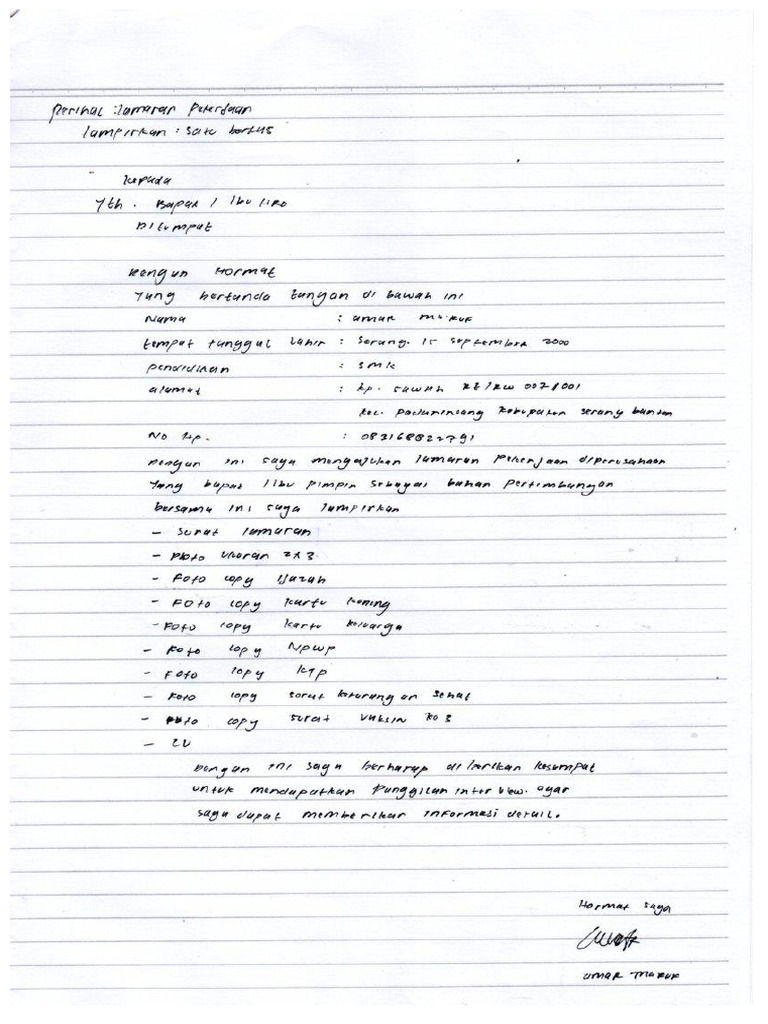 Perihal : lamaran Pekerjaan
lampirkan : satu berkas
kepada
Yth . Bapak / Ibu HRD
Ditempat
Dengan Hormat
Yang bertanda tangan di bawah ini
Nama : umar makuf
tempat tanggal lahir : Serang. 15 September 2000
pendidikan : SMK
alamat : kp. sawah RT/RW 007/001
kec. Padarincang kabupaten serang banten
No Hp. : 083168822791
Dengan ini saya mengajukan lamaran pekerjaan diperusahaan
Yang bapak / ibu pimpin sebagai bahan pertimbangan
bersama ini saya lampirkan
- Surat lamaran
- Photo ukuran 2x3
- Foto copy Ijazah
- Foto copy kartu kuning
- Foto copy kartu keluarga
- Foto copy Npwp
- Foto copy KTP
- Foto copy surat keterangan sehat
- Foto copy surat vaksin ke 3
- CV
Dengan ini saya berharap di berikan kesempat
untuk mendapatkan Panggilan interview. agar
saya dapat memberikan informasi detail.
Hormat saya
umar makuf